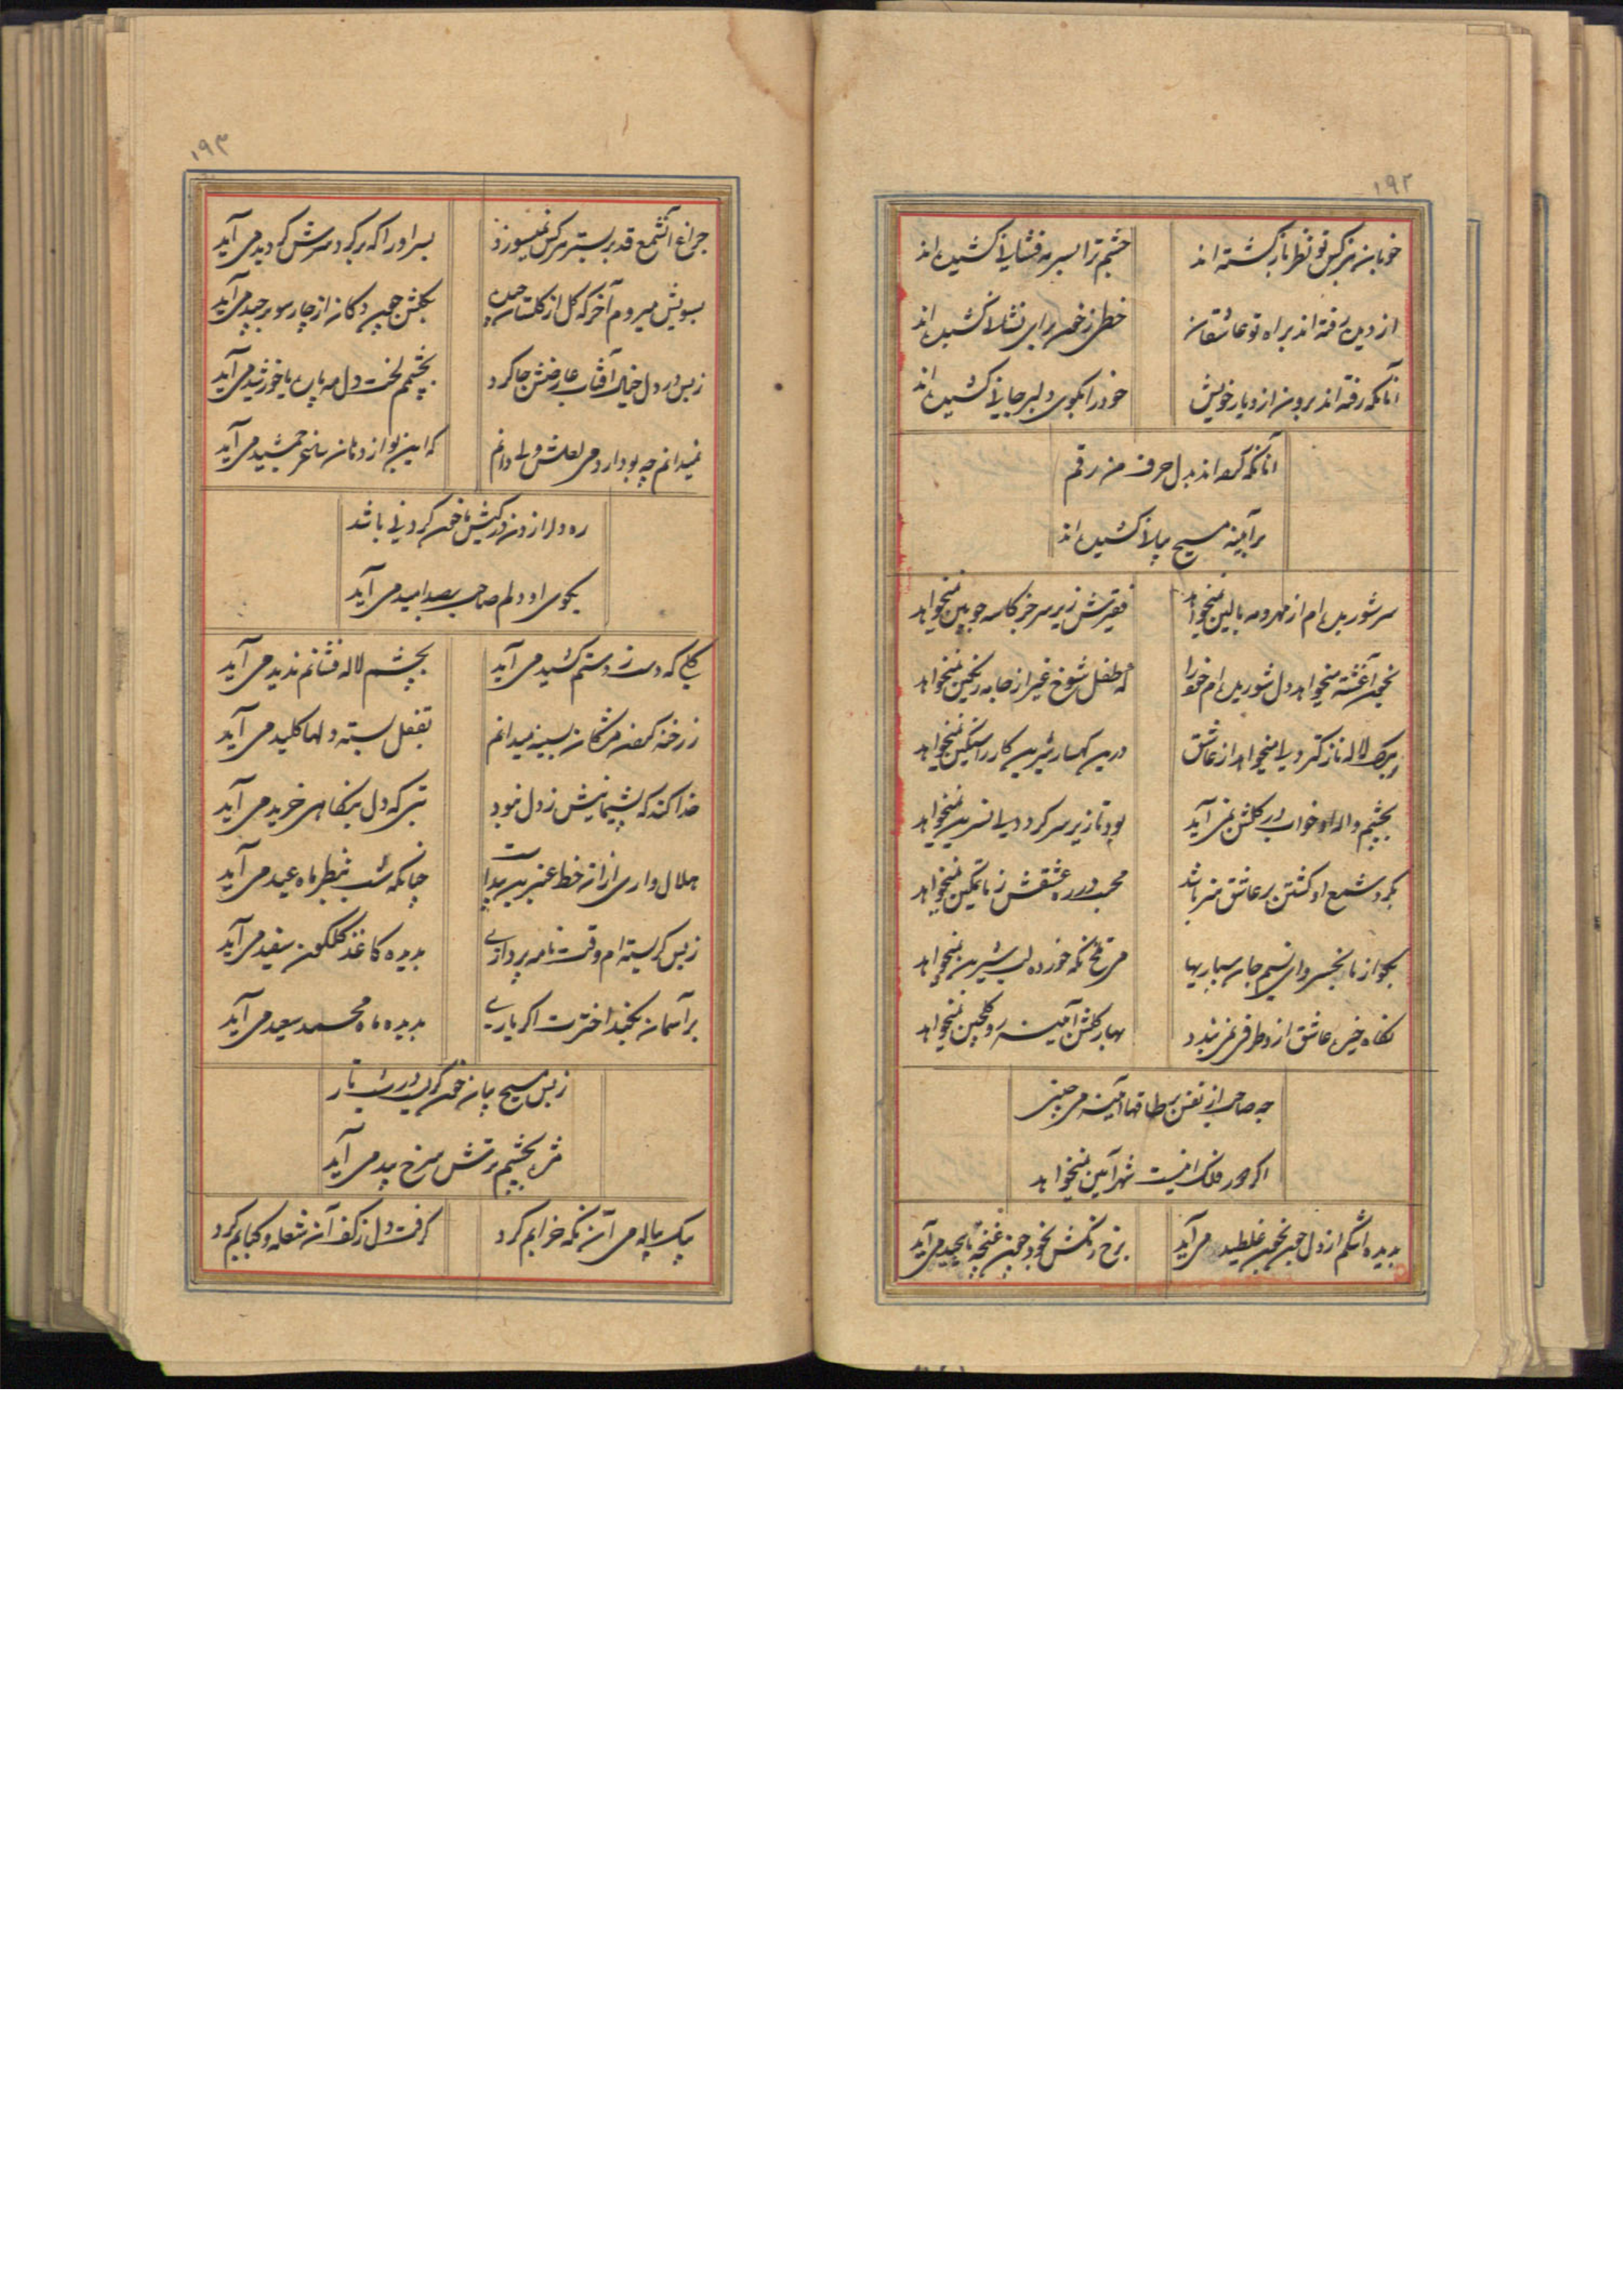 ۱۹۲
خوبان نرکس تو نظر باز کشته اند
چشم ترا بسرمه کشیده اند
از دیده رفته اند براه تو عاشقان
خطی ز خون برای کشیده اند
آنانکه رفته اند برون از دیار خویش
خود را بکوی دلبر کشیده اند
آنانکه کرده اند بدل حرف من رقم
بر آینه مسیح کشیده اند
سر شوریده ام از مهر و مه بالین نمیخواهد
فقیرش زیر سر جز کاسه چوبین نمیخواهد
بخون آغشته میخواهد دل شوریده ام خود را
که طفل شوخ غیر از جامه رنکین نمیخواهد
ز برک لاله نازکتر دلی میخواهد از عاشق
درین کهسار شیرین کار را سنکین نمیخواهد
بچشم واله او خواب در کلشن نمی آید
بود تا زیر سر نسرین نمیخواهد
بکرد شمع او کشتن بر عاشق
محبت در ره عشقش ز ما تمکین نمیخواهد
بجو از ما بخسرو ای نسیم جان
می تلخ نکه خورده لب شیرین نمیخواهد
نکاه خیره عاشق از و طرفی نمی بندد
بهار کلشن آیینه رو کلچین نمیخواهد
چه صاحب از نفس بر طاقها آیینه می چینی
اکر در ملک نیست شهر آیین نمیخواهد
بدیده اشکم از دل خون بخون غلطیده می آید
برخ رنکش بخود چون غنچه پیچیده می آید
۱۹۳
چراغ آنشمع قد بر بستر هرکس نمیسوزد
بسر او را که بر کرد سرش کردیده می آید
بسویش میروم آخر که کل از کلستان چیده
بکلشن چین دکان از چارسو برچیده می آید
ز بس در دل خیال آفتاب عارضش جا کرد
بچشمم لخت دل مه پاره یا خورشید می آید
نمیدانم چه بو دارد می لعلش ولی دانم
که این بو از دهان ساغر جمشید می آید
بکوی او دلم صاحب بصد امید می آید
کلی که دست ز دستم کشیده می آید
بچشم لاله فشانم ندیده می آید
ز رخنه کردن مژکان بسینه میدانم
بقفل بسته دلها کلید می آید
خدا کند که پشیمانیش ز دل نبود
بتی که دل بنکاهی خریده می آید
هلال واری از آن خط عنبرین پیداست
چنانکه شب بنظر ماه عید می آید
ز بس کریسته ام وقت نامه پردازی
بدیده کاغذ کلکون سفید می آید
بر آسمان بکند اخترت اکر یاری
بدیده ماه محمد سعید می آید
ز بس مسیح بیان خون کریست در شب تار
بچشم ترش سرخ بید می آید
بیک پیاله می آن نکه خرابم کرد
کرفت دل ز کف آن شعله و کبابم کرد